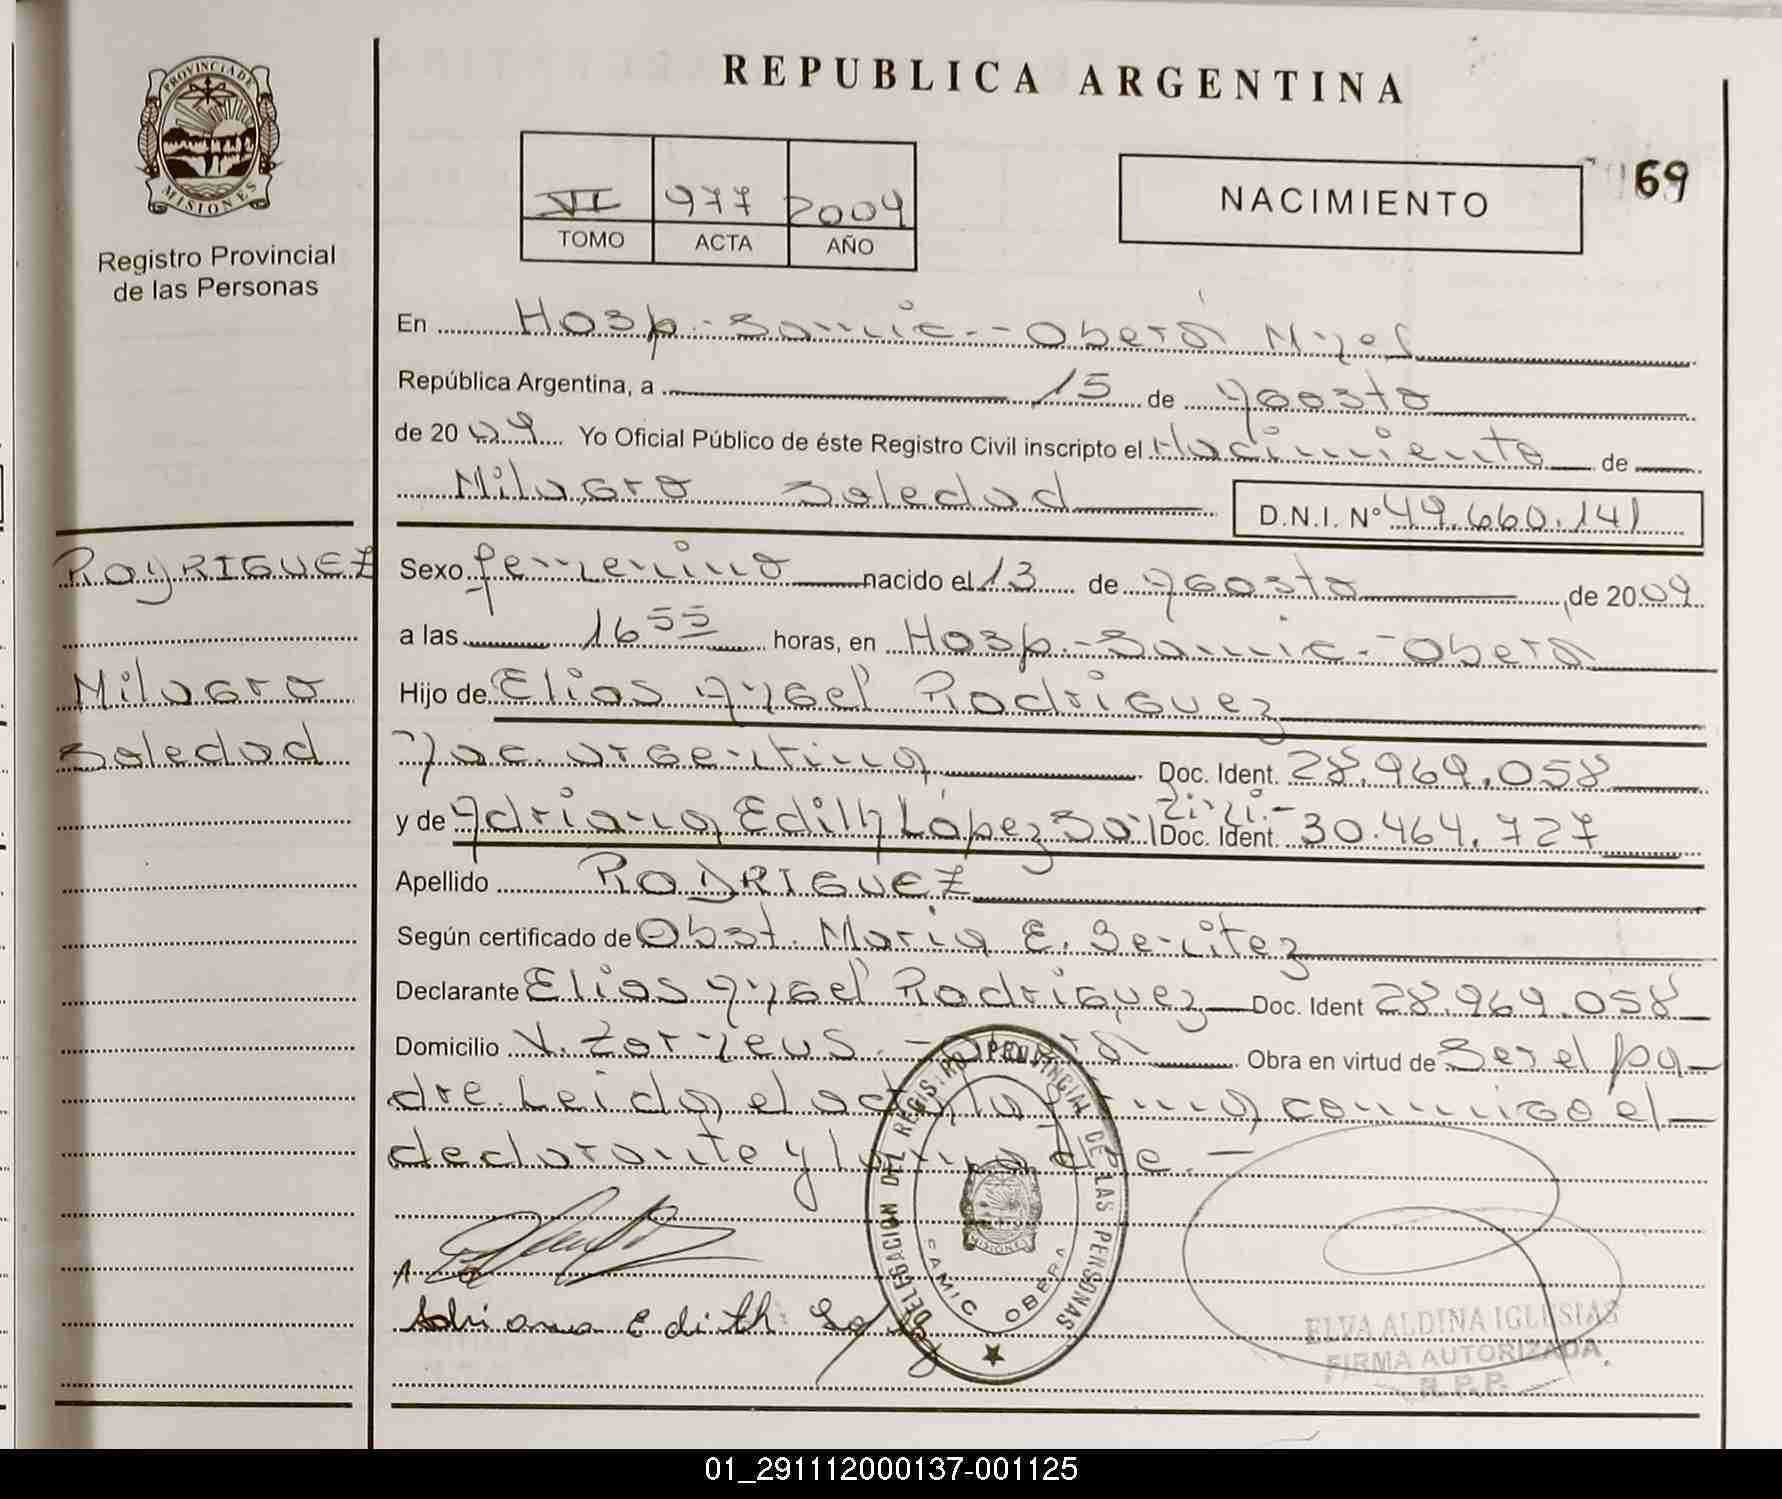 REPUBLICA ARGENTINA
PROVINCIA DE MISIONES
Registro Provincial
de las Personas
VI 977 2009
TOMO ACTA AÑO
NACIMIENTO
69
En Hosp. Samic - Oberá Mnes
República Argentina, a 15 de Agosto
de 2009 Yo Oficial Público de éste Registro Civil inscripto el Nacimiento de
Milagro Soledad D.N.I. Nº 49.660.141
RODRIGUEZ
Milagro
Soledad
Sexo femenino nacido el 13 de Agosto de 2009
a las 16 55 horas, en Hosp. Samic - Oberá
Hijo de Elias Angel Rodriguez
Nac. argentina Doc. Ident. 28.969.058
y de Adriana Edith López Doc. Ident. 30.464.727
Apellido RODRIGUEZ
Según certificado de Obst. Maria E. Benitez
Declarante Elias Angel Rodriguez Doc. Ident 28.969.058
Domicilio V. - Oberá Obra en virtud de Ser el pa
dre. Leida el acta la firma conmigo el
declarante y la madre. -
Adriana Edith López
DELEGACION DEL REGISTRO PROVINCIAL DE LAS PERSONAS
MISIONES
SAMIC OBERA
ELVA ALDINA IGLESIAS
FIRMA AUTORIZADA
R.P.P.
01_291112000137-001125